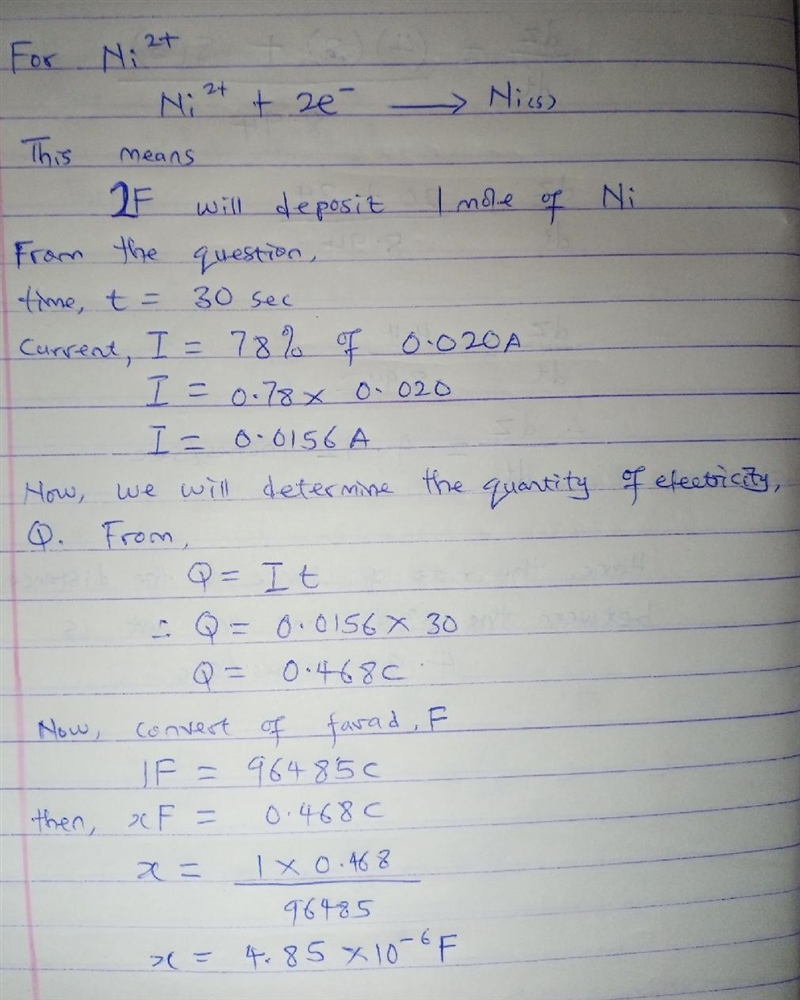 For Ni²⁺
Ni²⁺ + 2e⁻ ⟶ Ni(s)
This means
2F will deposit 1 mole of Ni
From the question,
time, t = 30 sec
Current, I = 78% of 0.020A
I = 0.78 × 0.020
I = 0.0156 A
Now, we will determine the quantity of electricity,
Q. From,
Q = It
∴ Q = 0.0156 × 30
Q = 0.468C
Now, convert of farad, F
1F = 96485C
then, xF = 0.468C
x = 1 × 0.468
96485
x = 4.85 × 10⁻⁶ F